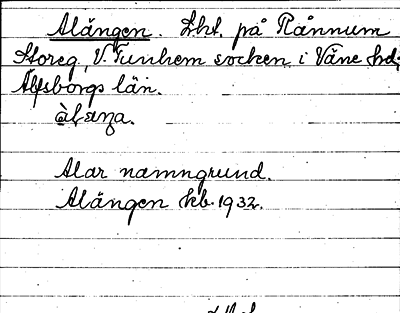 Alängen. Lht. på Rånnum
Storeg, V. Tunhem socken i Väne hd,
Älfsborgs län.
Alar namngrund.
Alängen kb. 1932.